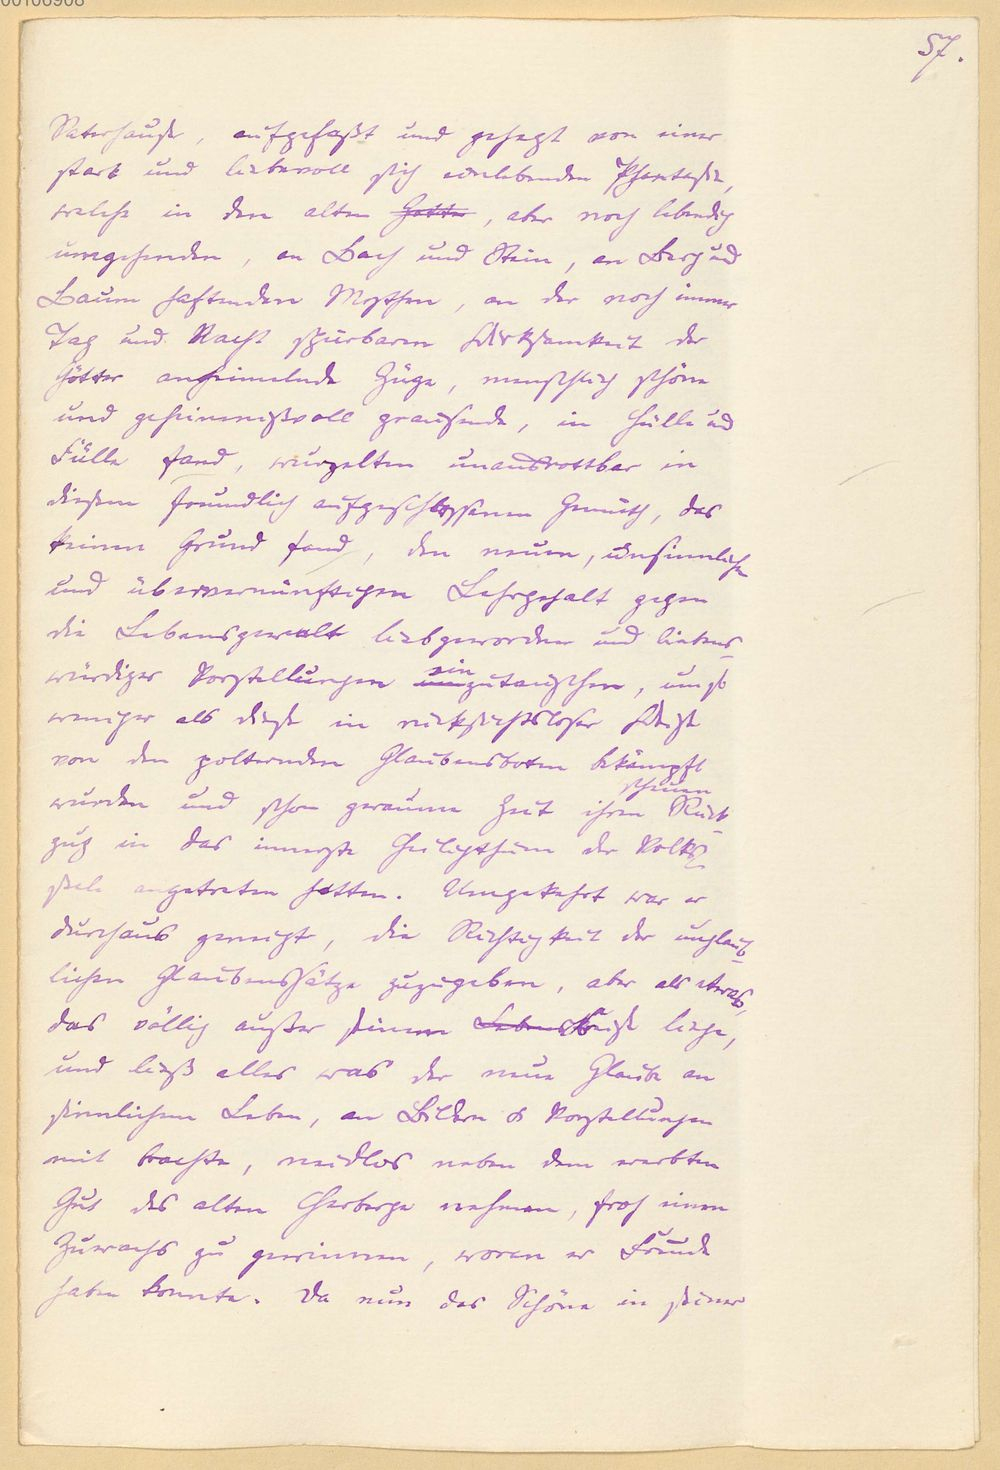 57.
Vaterhause, aufgefaßt und gehegt von einer
stark und liebevoll sich einlebenden Phantasie,
welche in den alten Götter, aber noch lebendig
umgehenden, an Bach und Stein, an Berg und
Baum haftenden Mythen, an der noch immer
Tag und Nacht spürbaren Wirksamkeit der
Götter anheimelnde Züge, menschlich schöne
und geheimnißvoll grausende, in Hülle und
Fülle fand, wurzelten unausrottbar in
diesem freundlich aufgeschlossenen Gemüth, das
keinen Grund fand, den neuen, unsinnlichen
und übervernünftigen Lehrgehalt gegen
die Lebensgewalt liebgeworden und liebens-
würdiger Vorstellungen einzutauschen, umso
weniger als diese in rücksichtsloser Weise
von den polternden Glaubensboten bekämpft
wurden und schon geraume Zeit ihren scheuen Rück-
zug in das innerste Heiligthum der Volks-
seele angetreten hatten. Umgekehrt war er
durchaus geneigt, die Richtigkeit der unglaub-
lichen Glaubenssätze zuzugeben, aber als etwas,
das völlig außer seinem Lebenskreise liege,
und ließ alles was der neue Glaube an
sinnlichem Leben, an Bildern & Vorstellungen
mit brachte, neidlos neben dem ererbten
Gut des alten Herberge nehmen, froh einen
Zuwachs zu gewinnen, woran er Freude
haben konnte. Da nun das Schöne in seiner